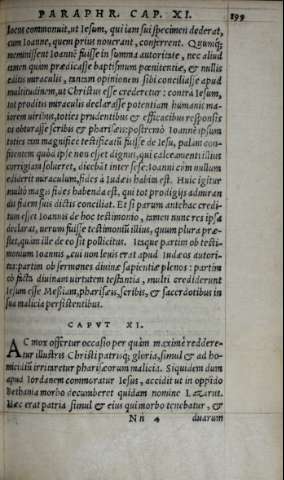 PARAPHR. CAP. XI. 199
locus commonuit, ut Iesum, qui iam sui specimen dederat,
cum Ioanne, quem prius noverant, conferrent. Quumq;
meminissent Ioannē fuisse in summa autoritate, nec aliud
tamen quàm prædicasse baptismum pœnitentiæ, & nullis
editis miraculis, tantam opinionem sibi conciliasse apud
multitudinem, ut Christus esse crederetur: contrà Iesum,
tot proditis miraculis declarasse potentiam humanis ma-
iorem uiribus, toties prudentibus & efficacibus responsis
os obturasse scribis & pharisæis: postremò Ioannē ipsum
toties tam magnifice testificatū fuisse de Iesu, palàm con-
fitentem quòd ipse non esset dignus, qui calceamenti illius
corrigiam solueret, dicebāt inter sese: Ioanni cùm nullum
ediderit miraculum, fides à Iudæis habita est. Huic igitur
multò magis fides habenda est, qui tot prodigijs admiran
dis fidem suis dictis conciliat. Et si parum antehac credi-
tum esset Ioannis de hoc testimonio, tamen nunc res ipsa
declarat, uerum fuisse testimoniū illius, quum plura præ-
stet, quàm ille de eo sit pollicitus. Itaque partim ob testi-
monium Ioannis, cui non leuis erat apud Iudæos autori-
tas: partim ob sermones diuinæ sapientiæ plenos: partim
ob facta diuinam uirtutem testantia, multi crediderunt
Iesum esse Messiam, pharisæis, scribis, & sacerdotibus in
sua malicia persistentibus.
CAPVT XI.
AC mox offertur occasio per quàm maximè reddere-
tur illustris Christi patrisq; gloria, simul & ad ho-
micidiū irritaretur pharisæorum malicia. Siquidem dum
apud Iordanem commoratur Iesus, accidit ut in oppido
Bethania morbo decumberet quidam nomine Lazarus.
Hæc erat patria simul & eius qui morbo tenebatur, &
Nn 4 duarum